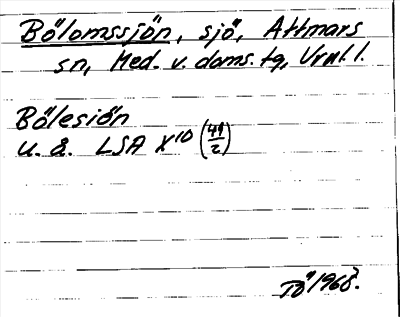 Bölomssjön, sjö, Attmars
sn, Med. v. doms. tg, Vrnl. l.
Bölesiön
u. å. LSA X10 (49/2)
Bö 1968.